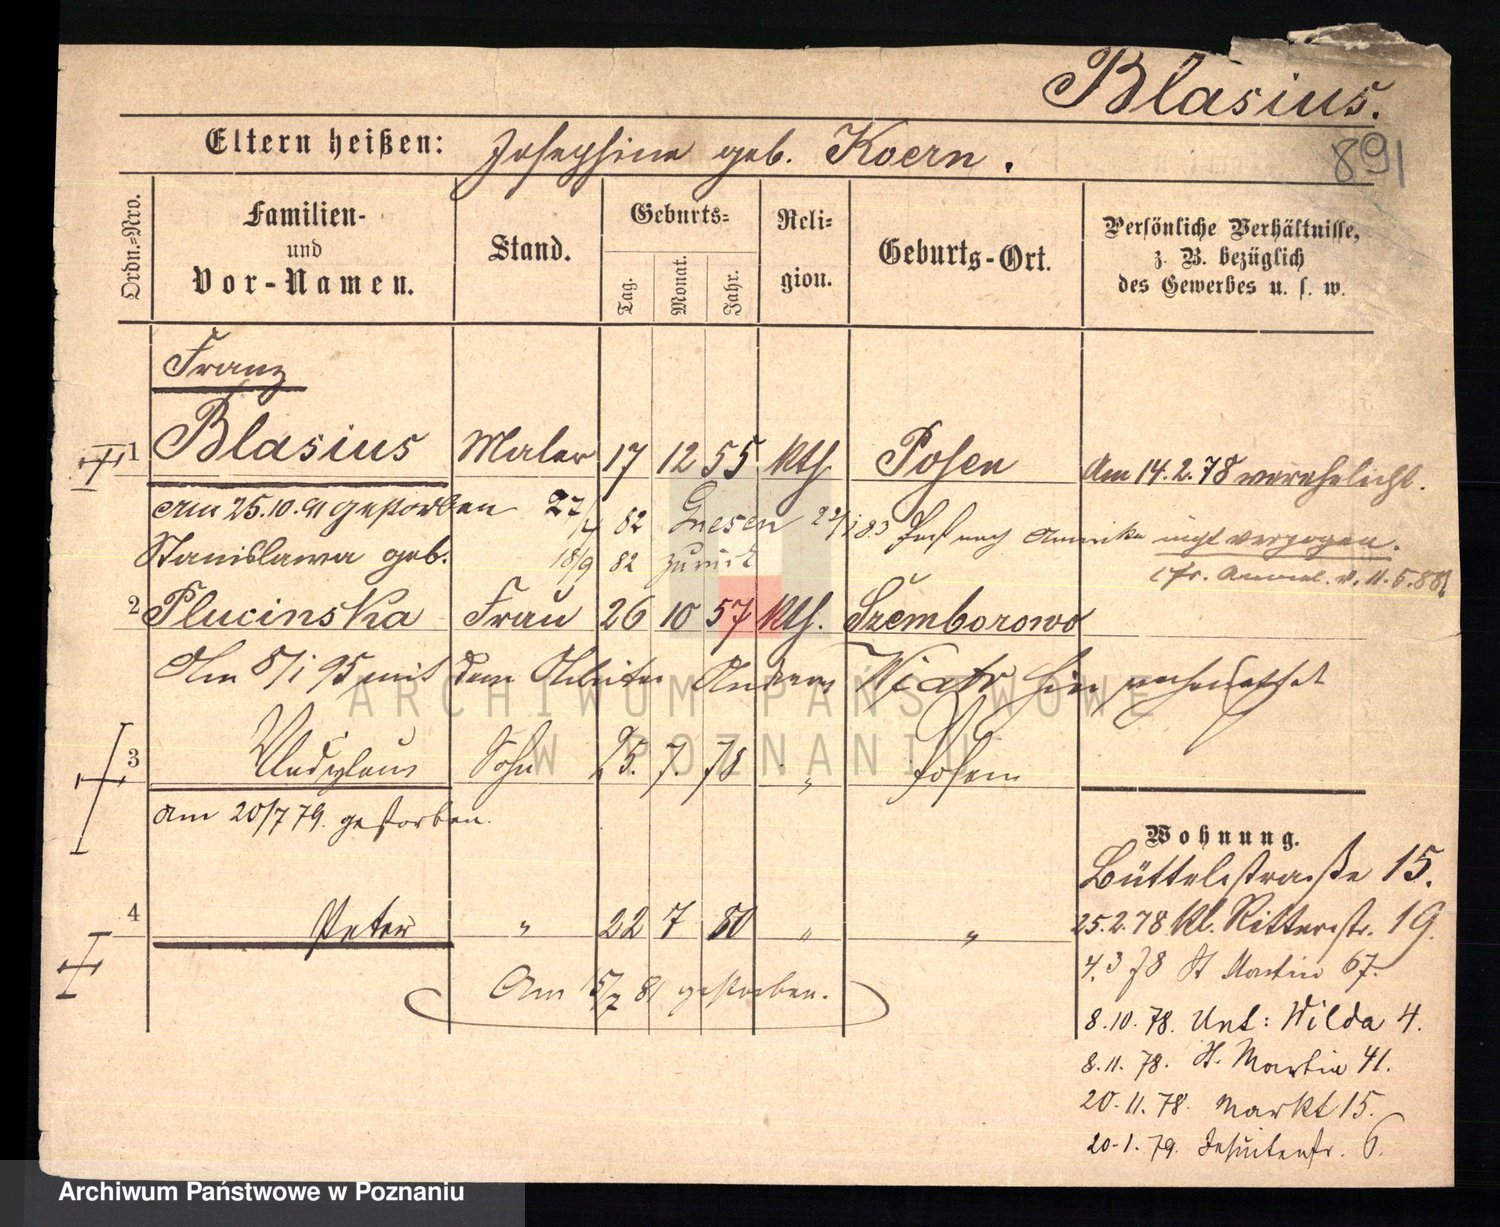 Blasius.
891
Eltern heißen: Josephine geb. Koern.
Ordn.=Nro.
Familien-
und
Vor-Namen.
Stand.
Geburts=
Tag.
Monat.
Jahr.
Reli=
gion.
Geburts-Ort.
Persönliche Verhältnisse,
z. B. bezüglich
des Gewerbes u. s. w.
Franz
1 Blasius Maler 17 12 55 kth Posen Am 14.2.78 verehelicht.
Am 25.10.91 gestorben 82 Gnesen
nach Amerika nicht verzogen.
Stanislawa geb. 18/9 82 zurück
v. 11.5.88
2 Plucinska Frau 26 10 57 kth. Szemborowo
Am 5/1 95 mit dem Arbeiter Andreas Wiatr hier verheirathet
3 Wladyslaus Sohn 25. 7. 78 " Posen
Am 20/7 79. gestorben.
4 Peter " 22 7 80 " "
Am 15/7 81 gestorben.
Wohnung.
Büttelstraße 15.
25.2.78 kl. Ritterstr. 19.
4.3 78 St Martin 67.
8.10.78. Unt: Wilda 4.
8.11.78. St. Martin 41.
20.11.78. Markt 15.
20-1.79. Jesuitenstr. 6.
ARCHIWUM PAŃSTWOWE
W POZNANIU
Archiwum Państwowe w Poznaniu